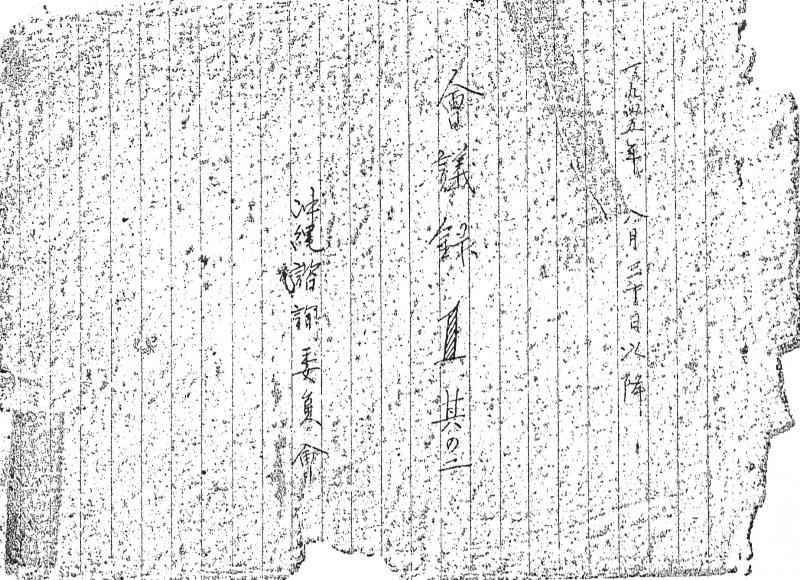 一九四五年 八月三十日以降
會議録 其の二
沖縄諮詢委員會